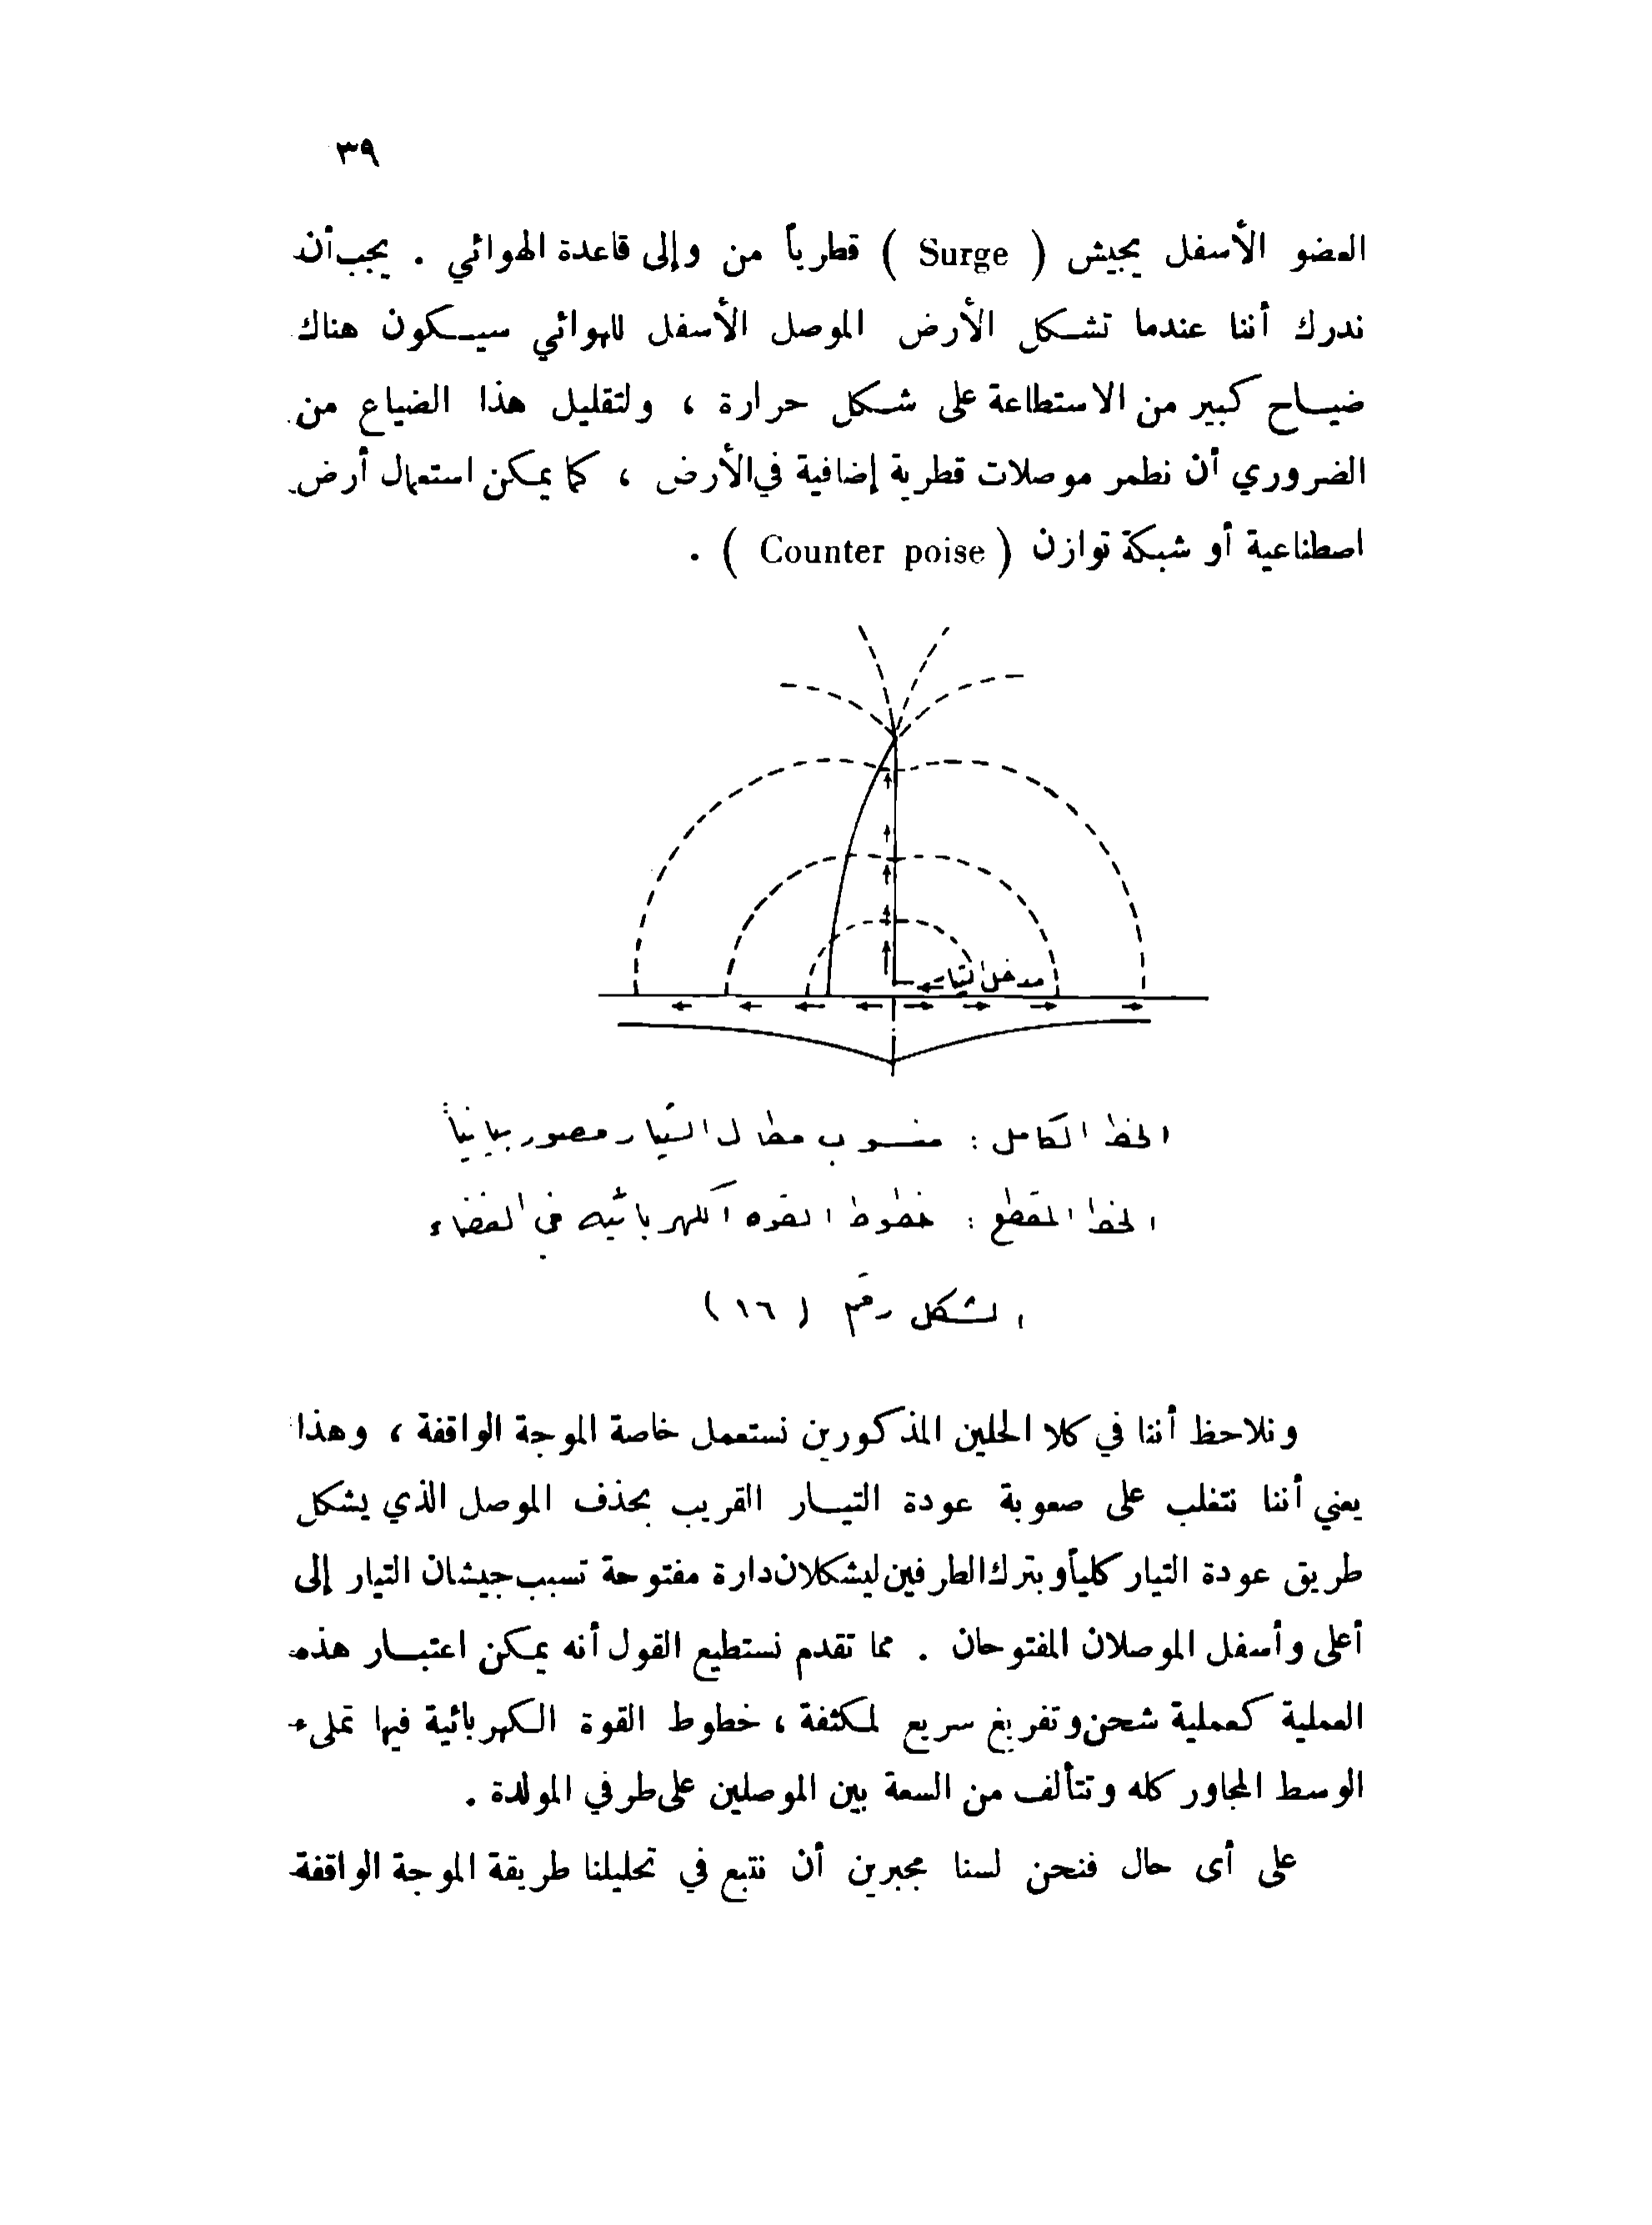 ٣٩
العضو الأسفل يجيش ( Surge ) قطرياً من وإلى قاعدة الهوائي . يجب أن
ندرك أننا عندما تشكل الأرض الموصل الأسفل للهوائي سيكون هناك
ضياح كبير من الاستطاعة على شكل حرارة ، ولتقليل هذا الضياع من
الضروري أن نطمر موصلات قطرية إضافية في الأرض ، كما يمكن استعمال أرض
اصطناعية أو شبكة توازن ( Counter poise ) .
مدخل التيار
الخط الكامل : منسوب مطال التيار مصور بيانياً
الخط المقطع : خطوط القوه الكهربائيه في الفضاء
الشكل رقم ( ١٦ )
ونلاحظ أننا في كلا الحلين المذكورين نستعمل خاصة الموجة الواقفة ، وهذا
يعني أننا نتغلب على صعوبة عودة التيار القريب بحذف الموصل الذي يشكل
طريق عودة التيار كلياً وبترك الطرفين ليشكلان دارة مفتوحة تسبب جيشان التيار إلى
أعلى وأسفل الموصلان المفتوحان . مما تقدم نستطيع القول أنه يمكن اعتبار هذه
العملية كعملية شحن وتفريغ سريع لمكثفة ، خطوط القوة الكهربائية فيها تملىء
الوسط المجاور كله وتتألف من السعة بين الموصلين على طرفي المولدة .
على أى حال فنحن لسنا مجبرين أن نتبع في تحليلنا طريقة الموجة الواقفة